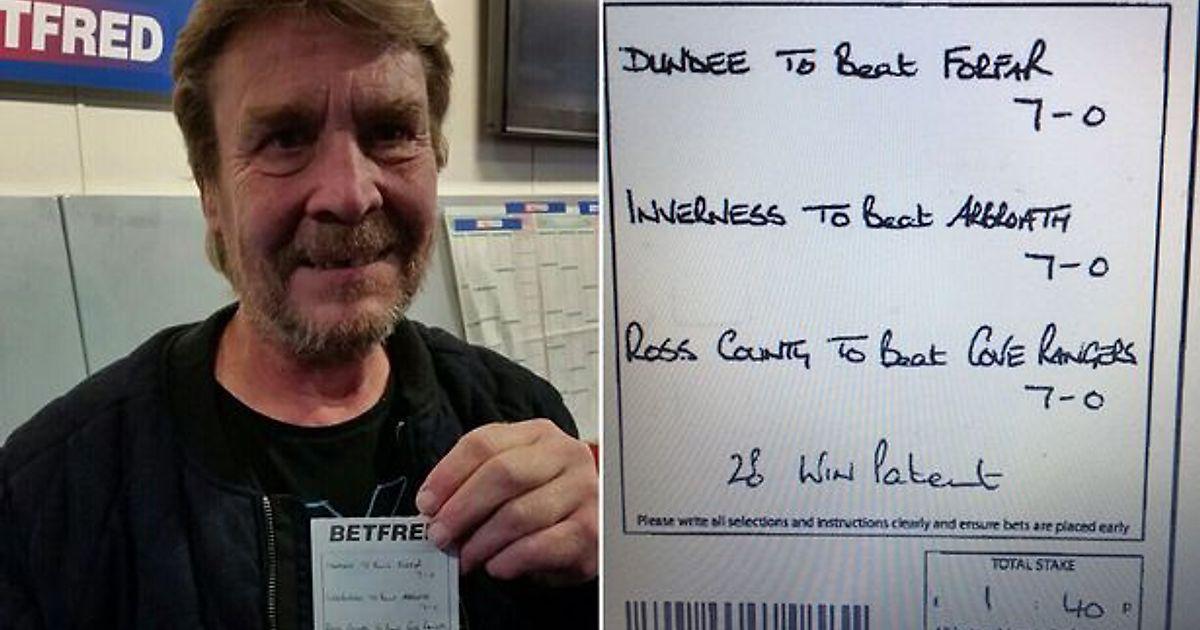 TFRED
BETFRE
DUNDEE TO Beat FORFAR
7-0
INVERNESS TO Beat ARBROATH
7-0
ROSS COUNTY TO Beat COVE RANGERS
7-0
28 WIN Patent
Please write all selections and instructions clearly and ensure bets are placed early
TOTAL STAKE
£ 1 : 40 P